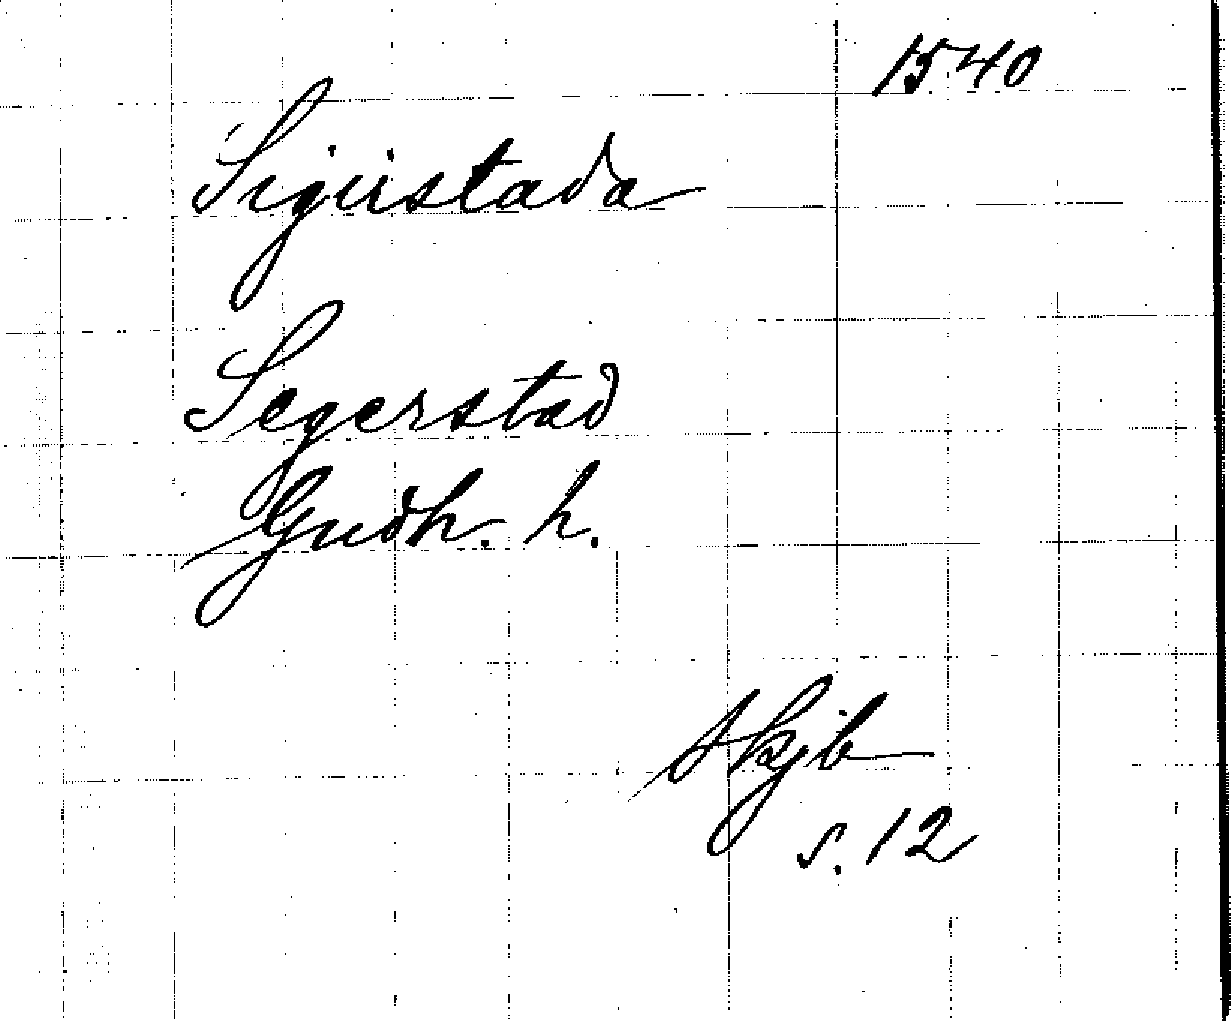 1540
Sigirstada
Segerstad
Gudh. h.
Skjb
s. 12